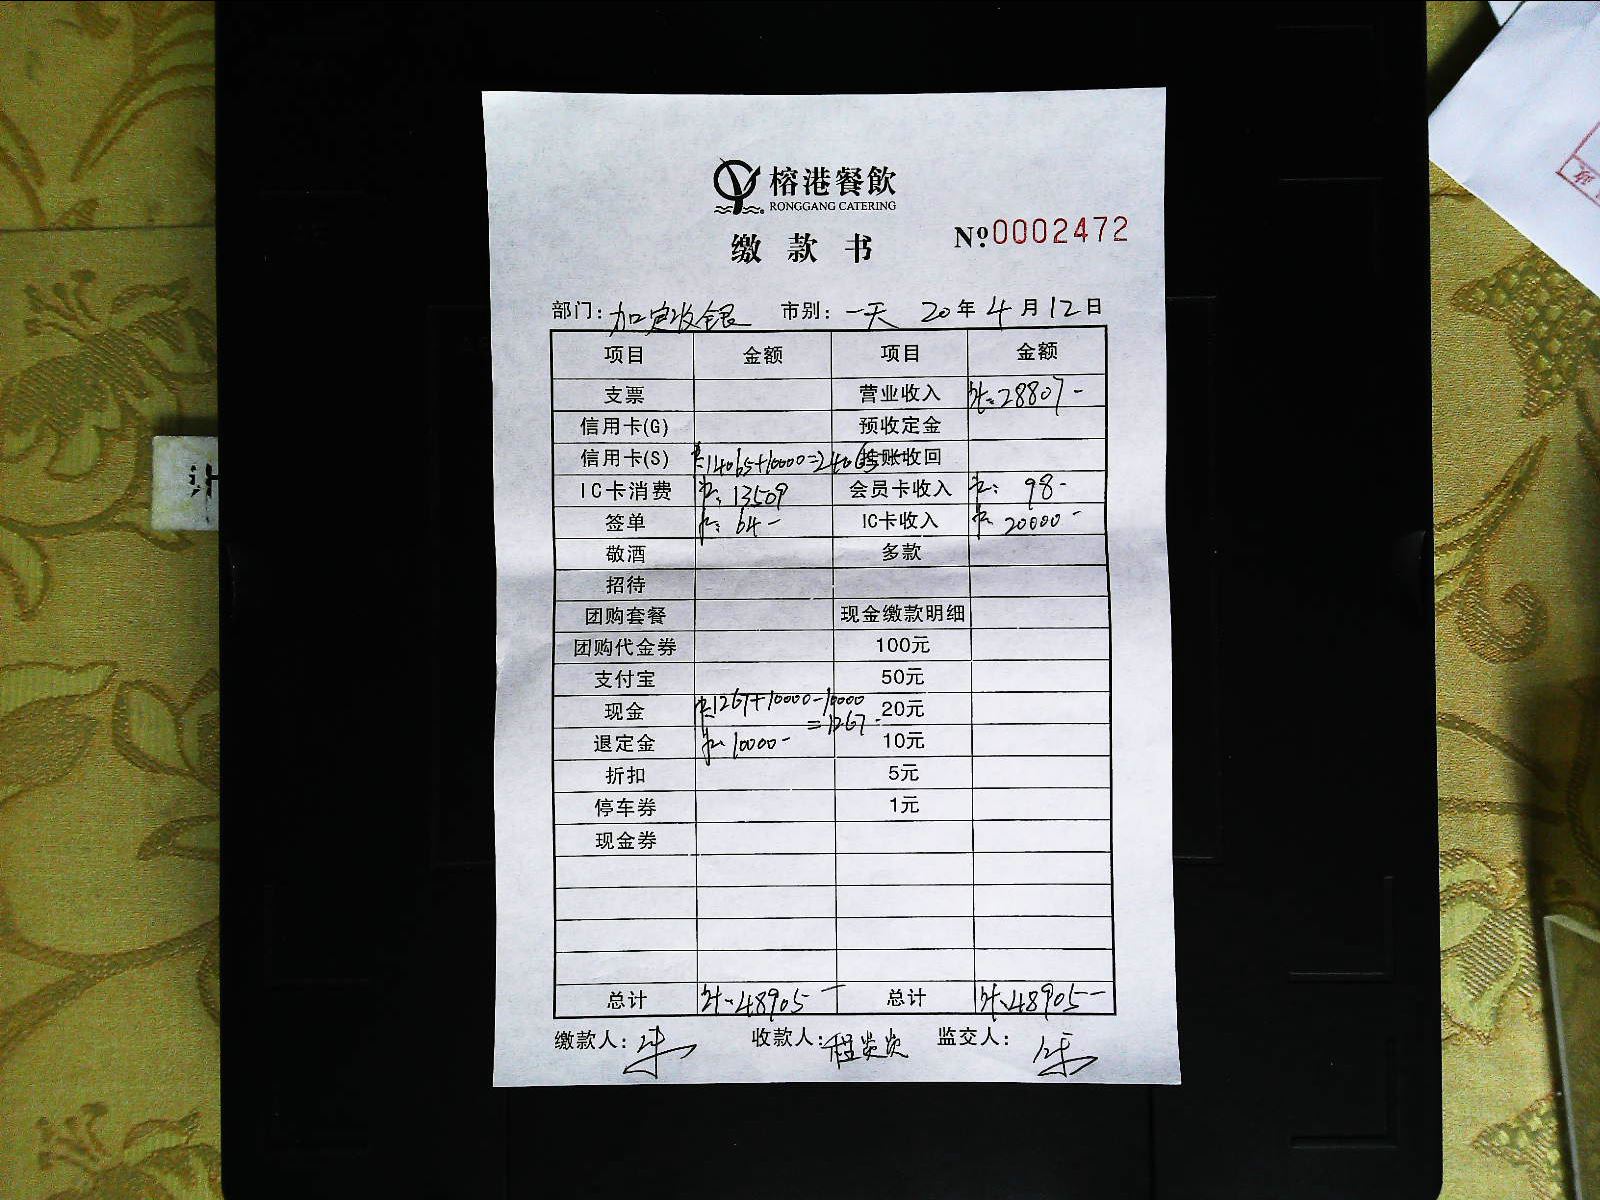 榕港餐飲
RONGGANG CATERING
缴款书
Nº 0002472
部门: 加定收银 市别: 一天 20年4月12日
项目 金额 项目 金额
支票 营业收入 计: 28807-
信用卡(G) 预收定金
信用卡(S) 14065+10000=24065 挂账收回
IC卡消费 13509 会员卡收入 98-
签单 64- IC卡收入 20000-
敬酒 多款
招待
团购套餐 现金缴款明细
团购代金券 100元
支付宝 50元
现金 1267+10000-10000 20元
=1267-
退定金 10000- 10元
折扣 5元
停车券 1元
现金券
总计 计: 48905- 总计 计: 48905-
缴款人: 收款人: 程 监交人: